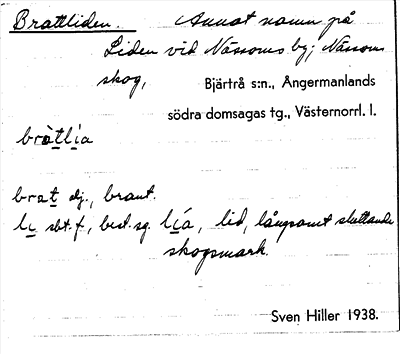 Brattliden. Annat namn på
Liden vid Nässoms by; Nässom
skog,
Bjärtrå s:n., Ångermanlands
södra domsagas tg., Västernorrl. l.
bràtlía
brat dj., brant.
li sbt. f., best. sg. lía, lid, långsamt sluttande
skogsmark.
Sven Hiller 1938.